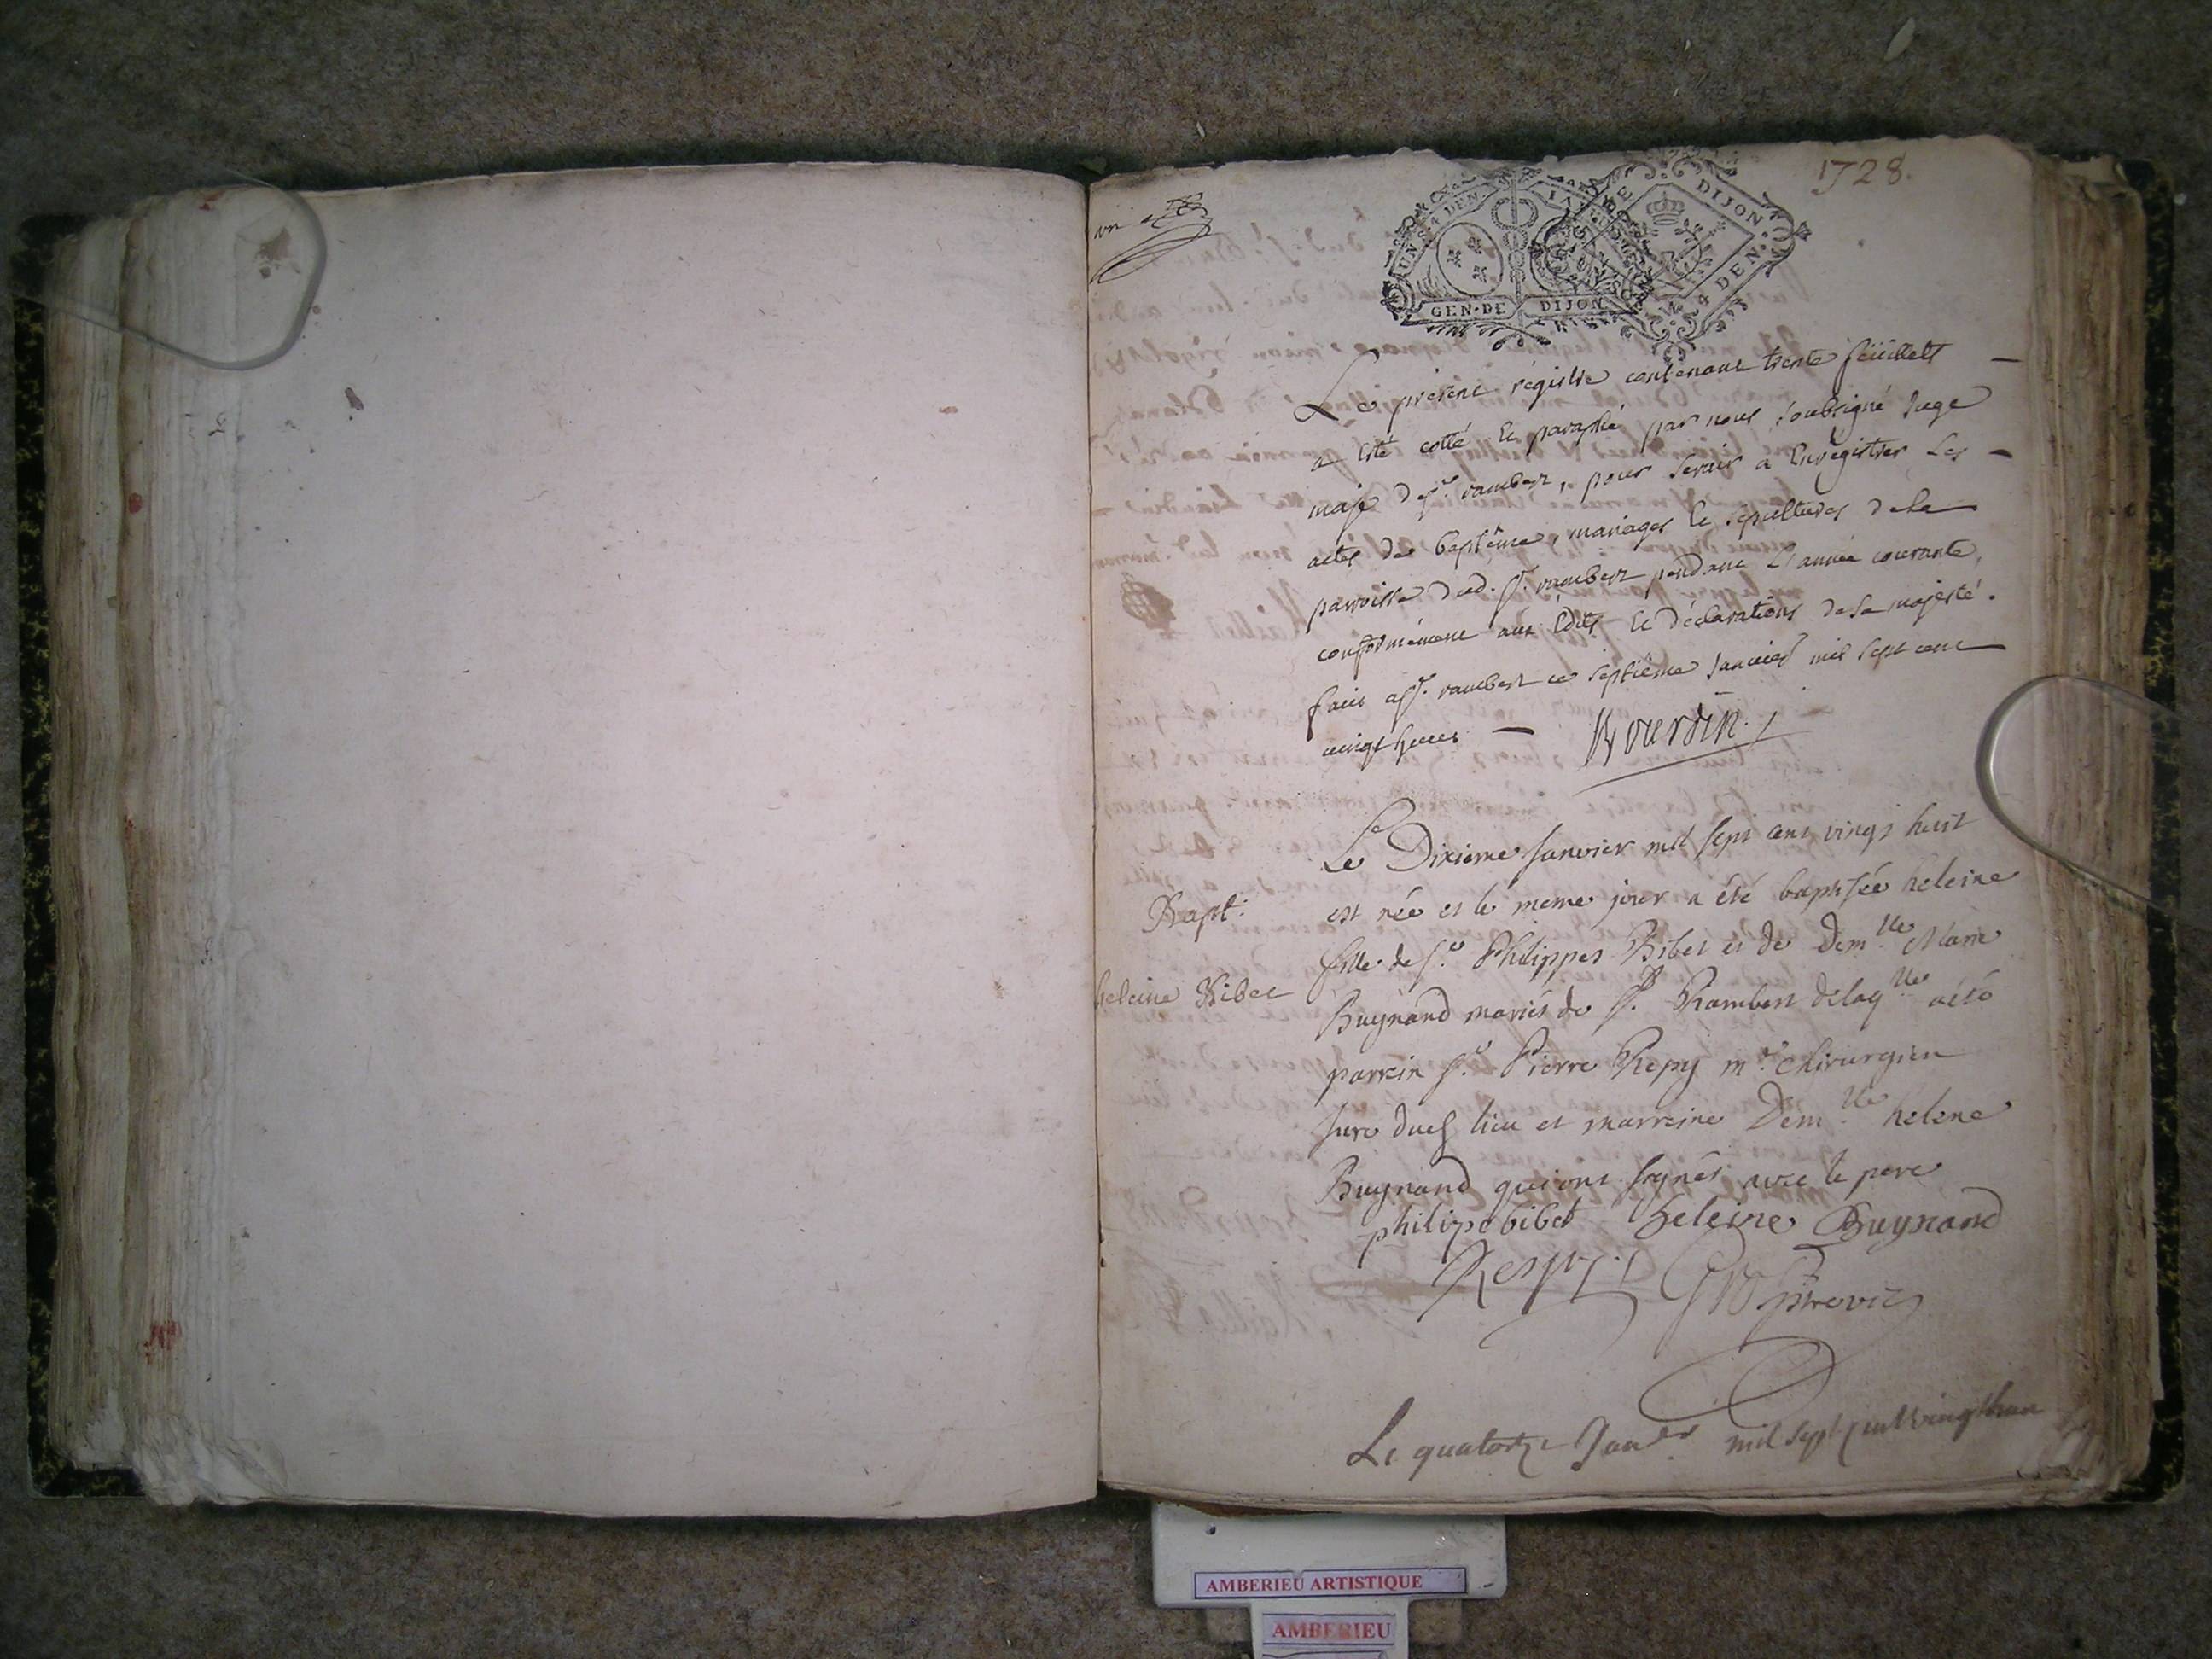 1728.
GEN·DE DIJON
DIJON
4 DEN.
Le present régistre contenant trente feüillets
a esté cotté et paraphé par nous soubsigné Juge
maje de St. rambert, pour servir a Enregistrer Les
actes de baptême, mariages et sépultures de la
parroisse dud. St. rambert pendant L'année courante,
conformément aux Edits et déclarations de sa majesté.
fait a St. rambert ce septième Janvier mil sept cent
vingt huit
Bourdin
Le Dixieme Janvier mil sept cent vingt huit
Bapt.
est née et le meme jour a été baptisée heleine
fille de sr. Philippes Bibet et de Demlle. Marie
heleine Bibet
Buynand mariés de St. Rambert de laqlle a été
parrein sr. Pierre Repy mr. chirurgien
Juré dud. lieu et marreine Demlle. helene
Buynand qui ont signés avec le pere
philipe bibet heleine Buynand
Le quatorze Janer. mil sept cent vingt huit
AMBERIEU ARTISTIQUE
AMBERIEU